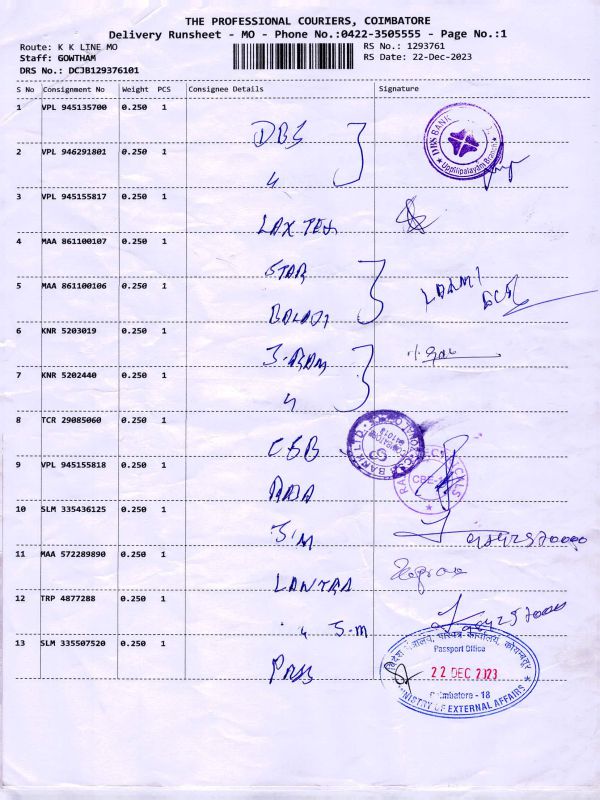 THE PROFESSIONAL COURIERS, COIMBATORE
Delivery Runsheet - MO - Phone No.:0422-3505555 - Page No.:1
Route: K K LINE MO
RS No.: 1293761
Staff: GOWTHAM
RS Date: 22-Dec-2023
DRS No.: DCJB129376101
S No Consignment No Weight PCS Consignee Details Signature
1 VPL 945135700 0.250 1
DBS
2 VPL 946291801 0.250 1
"
DBS BANK
Uppilipalayam Branch
3 VPL 945155817 0.250 1
LAX TEX
4 MAA 861100107 0.250 1
STAR
5 MAA 861100106 0.250 1
BALAJI
6 KNR 5203019 0.250 1
7 KNR 5202440 0.250 1
"
8 TCR 29085060 0.250 1
CSB
9 VPL 945155818 0.250 1
RAJA
CBE-
10 SLM 335436125 0.250 1
11 MAA 572289890 0.250 1
12 TRP 4877288 0.250 1
" J-M
13 SLM 335507520 0.250 1
Passport Office
22 DEC 2023
Coimbatore - 18
MINISTRY OF EXTERNAL AFFAIRS